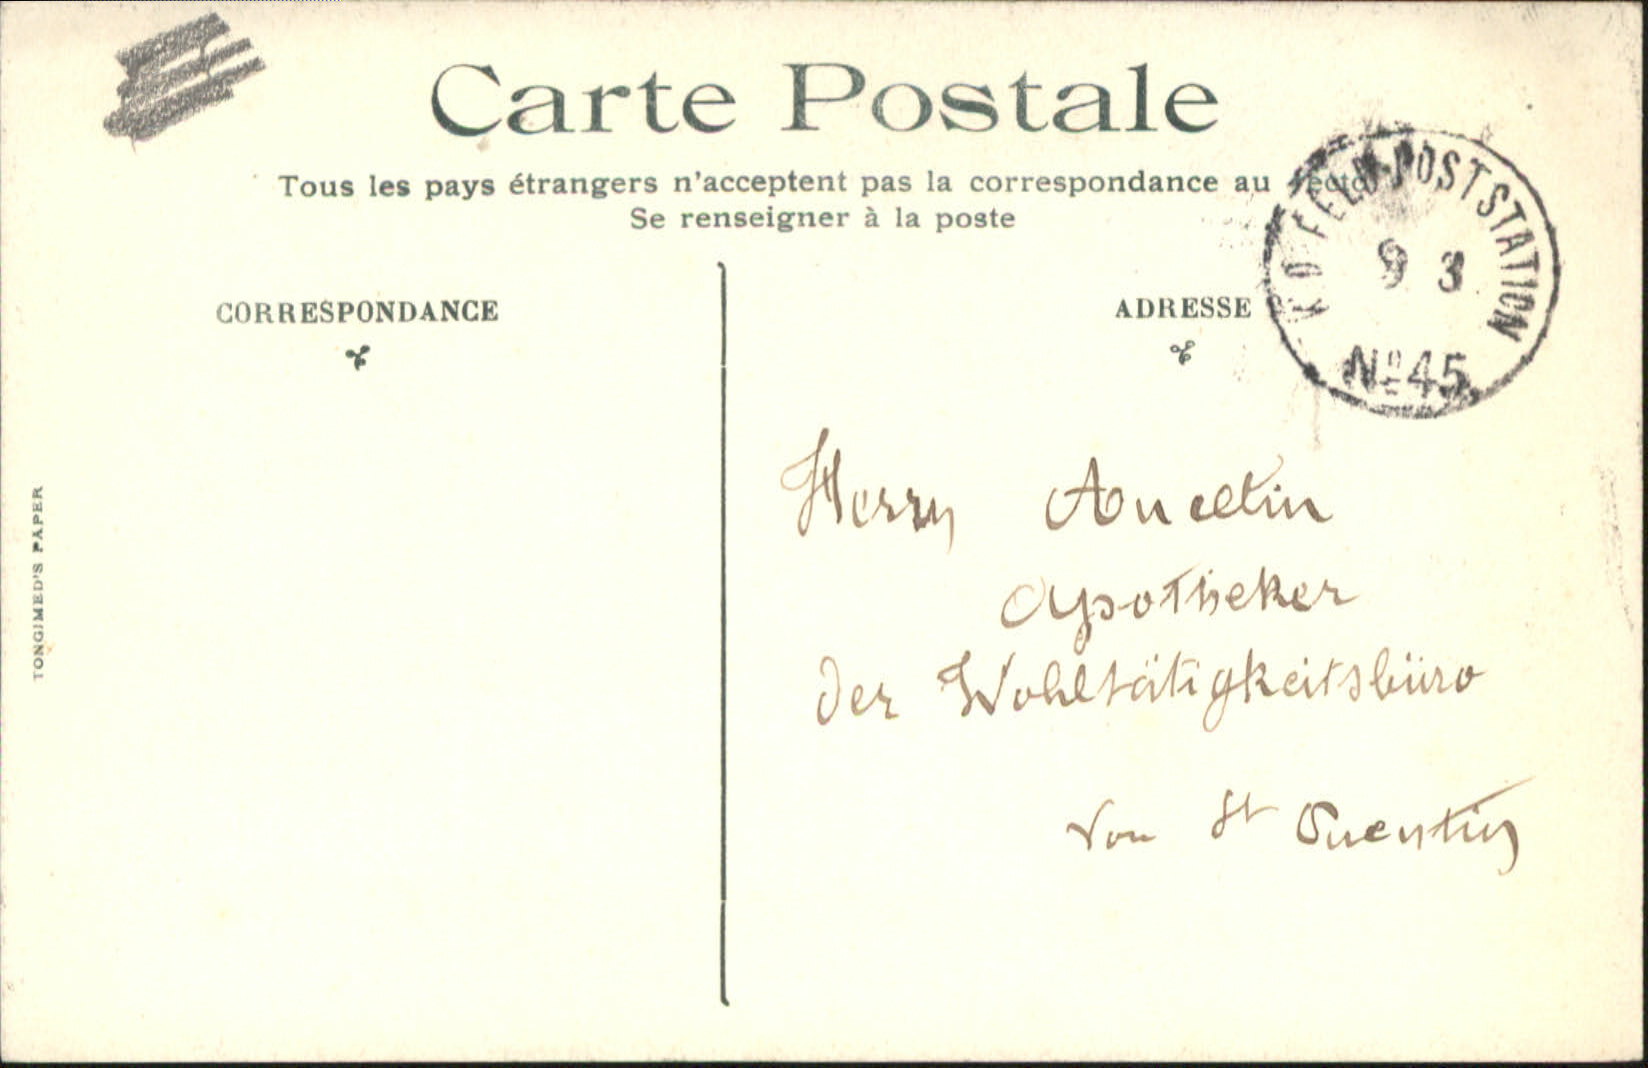 Carte Postale
Tous les pays étrangers n'acceptent pas la correspondance au recto
Se renseigner à la poste
CORRESPONDANCE
ADRESSE
K.D. FELD-POSTSTATION
9 3
No 45
Herrn
Apotheker
der Wohltätigkeitsbüro
von St Quentin
TONGIMED'S PAPER